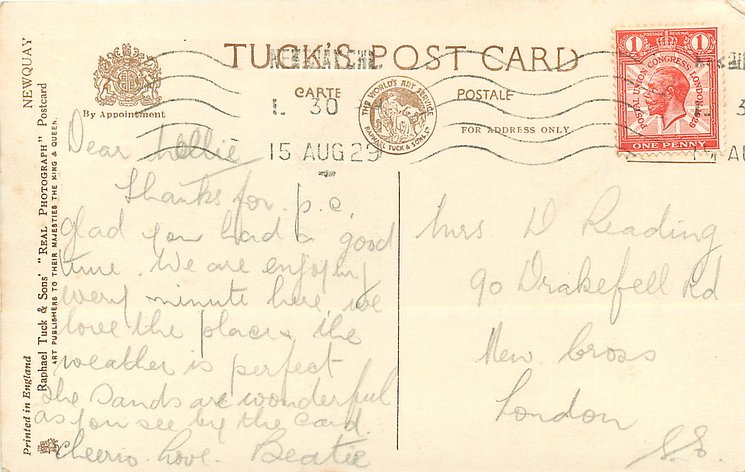 NEWQUAY
Raphael Tuck & Sons' "REAL PHOTOGRAPH" Postcard
ART PUBLISHERS TO THEIR MAJESTIES THE KING & QUEEN.
Printed in England
By Appointment
TUCK'S POST CARD
CARTE POSTALE
THE WORLD'S ART SERVICE
RAPHAEL TUCK & SONS LTD
FOR ADDRESS ONLY.
30
15 AUG 29
POSTAGE REVENUE
1 1
POSTAL UNION CONGRESS LONDON 1929
ONE PENNY
Dear Nellie
Thanks for p.c.
glad you had a good
time. We are enjoying
every minute here we
love the place & the
weather is perfect
The sands are wonderful
as you see by the card.
Cheerio. Love. Beatie
Mrs D Reading
90 Drakefell Rd
New Cross
London
S.E.